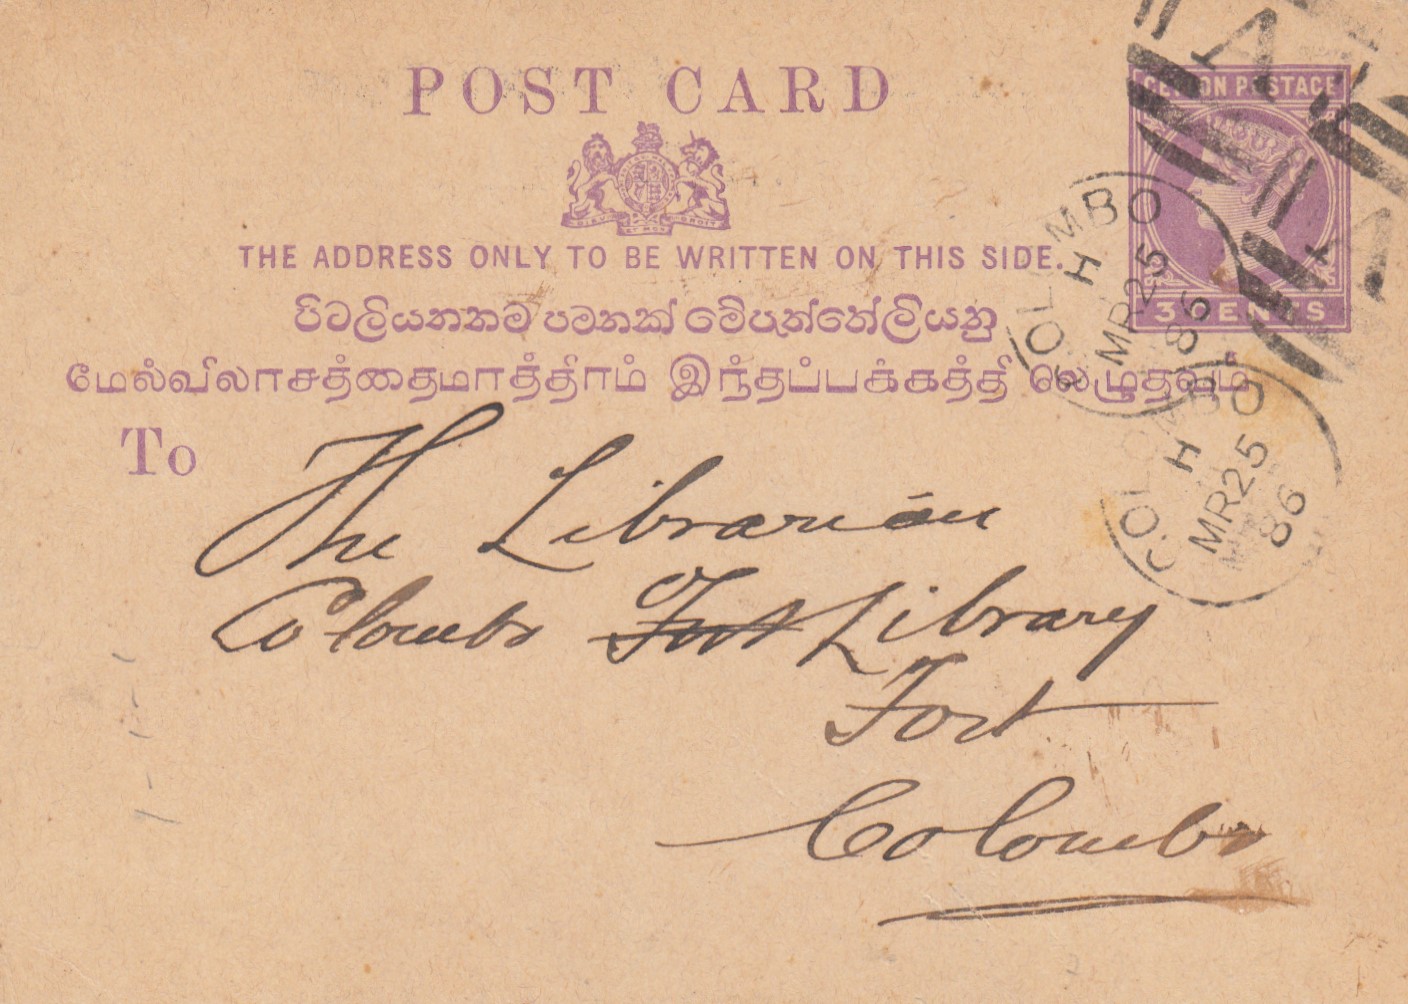 POST CARD
THE ADDRESS ONLY TO BE WRITTEN ON THIS SIDE.
பிටලියනතම පමනක් මෙපැත්තේලියනු
மேல்விலாசத்தைமாத்திரம் இந்தப்பக்கத்தி லெழுதவும்
To
The Librarian
Colombo Fort Library
Fort
Colombo
CEYLON POSTAGE
3 CENTS
COLOMBO
H
MR 25
86
COLOMBO
H
MR 25
86